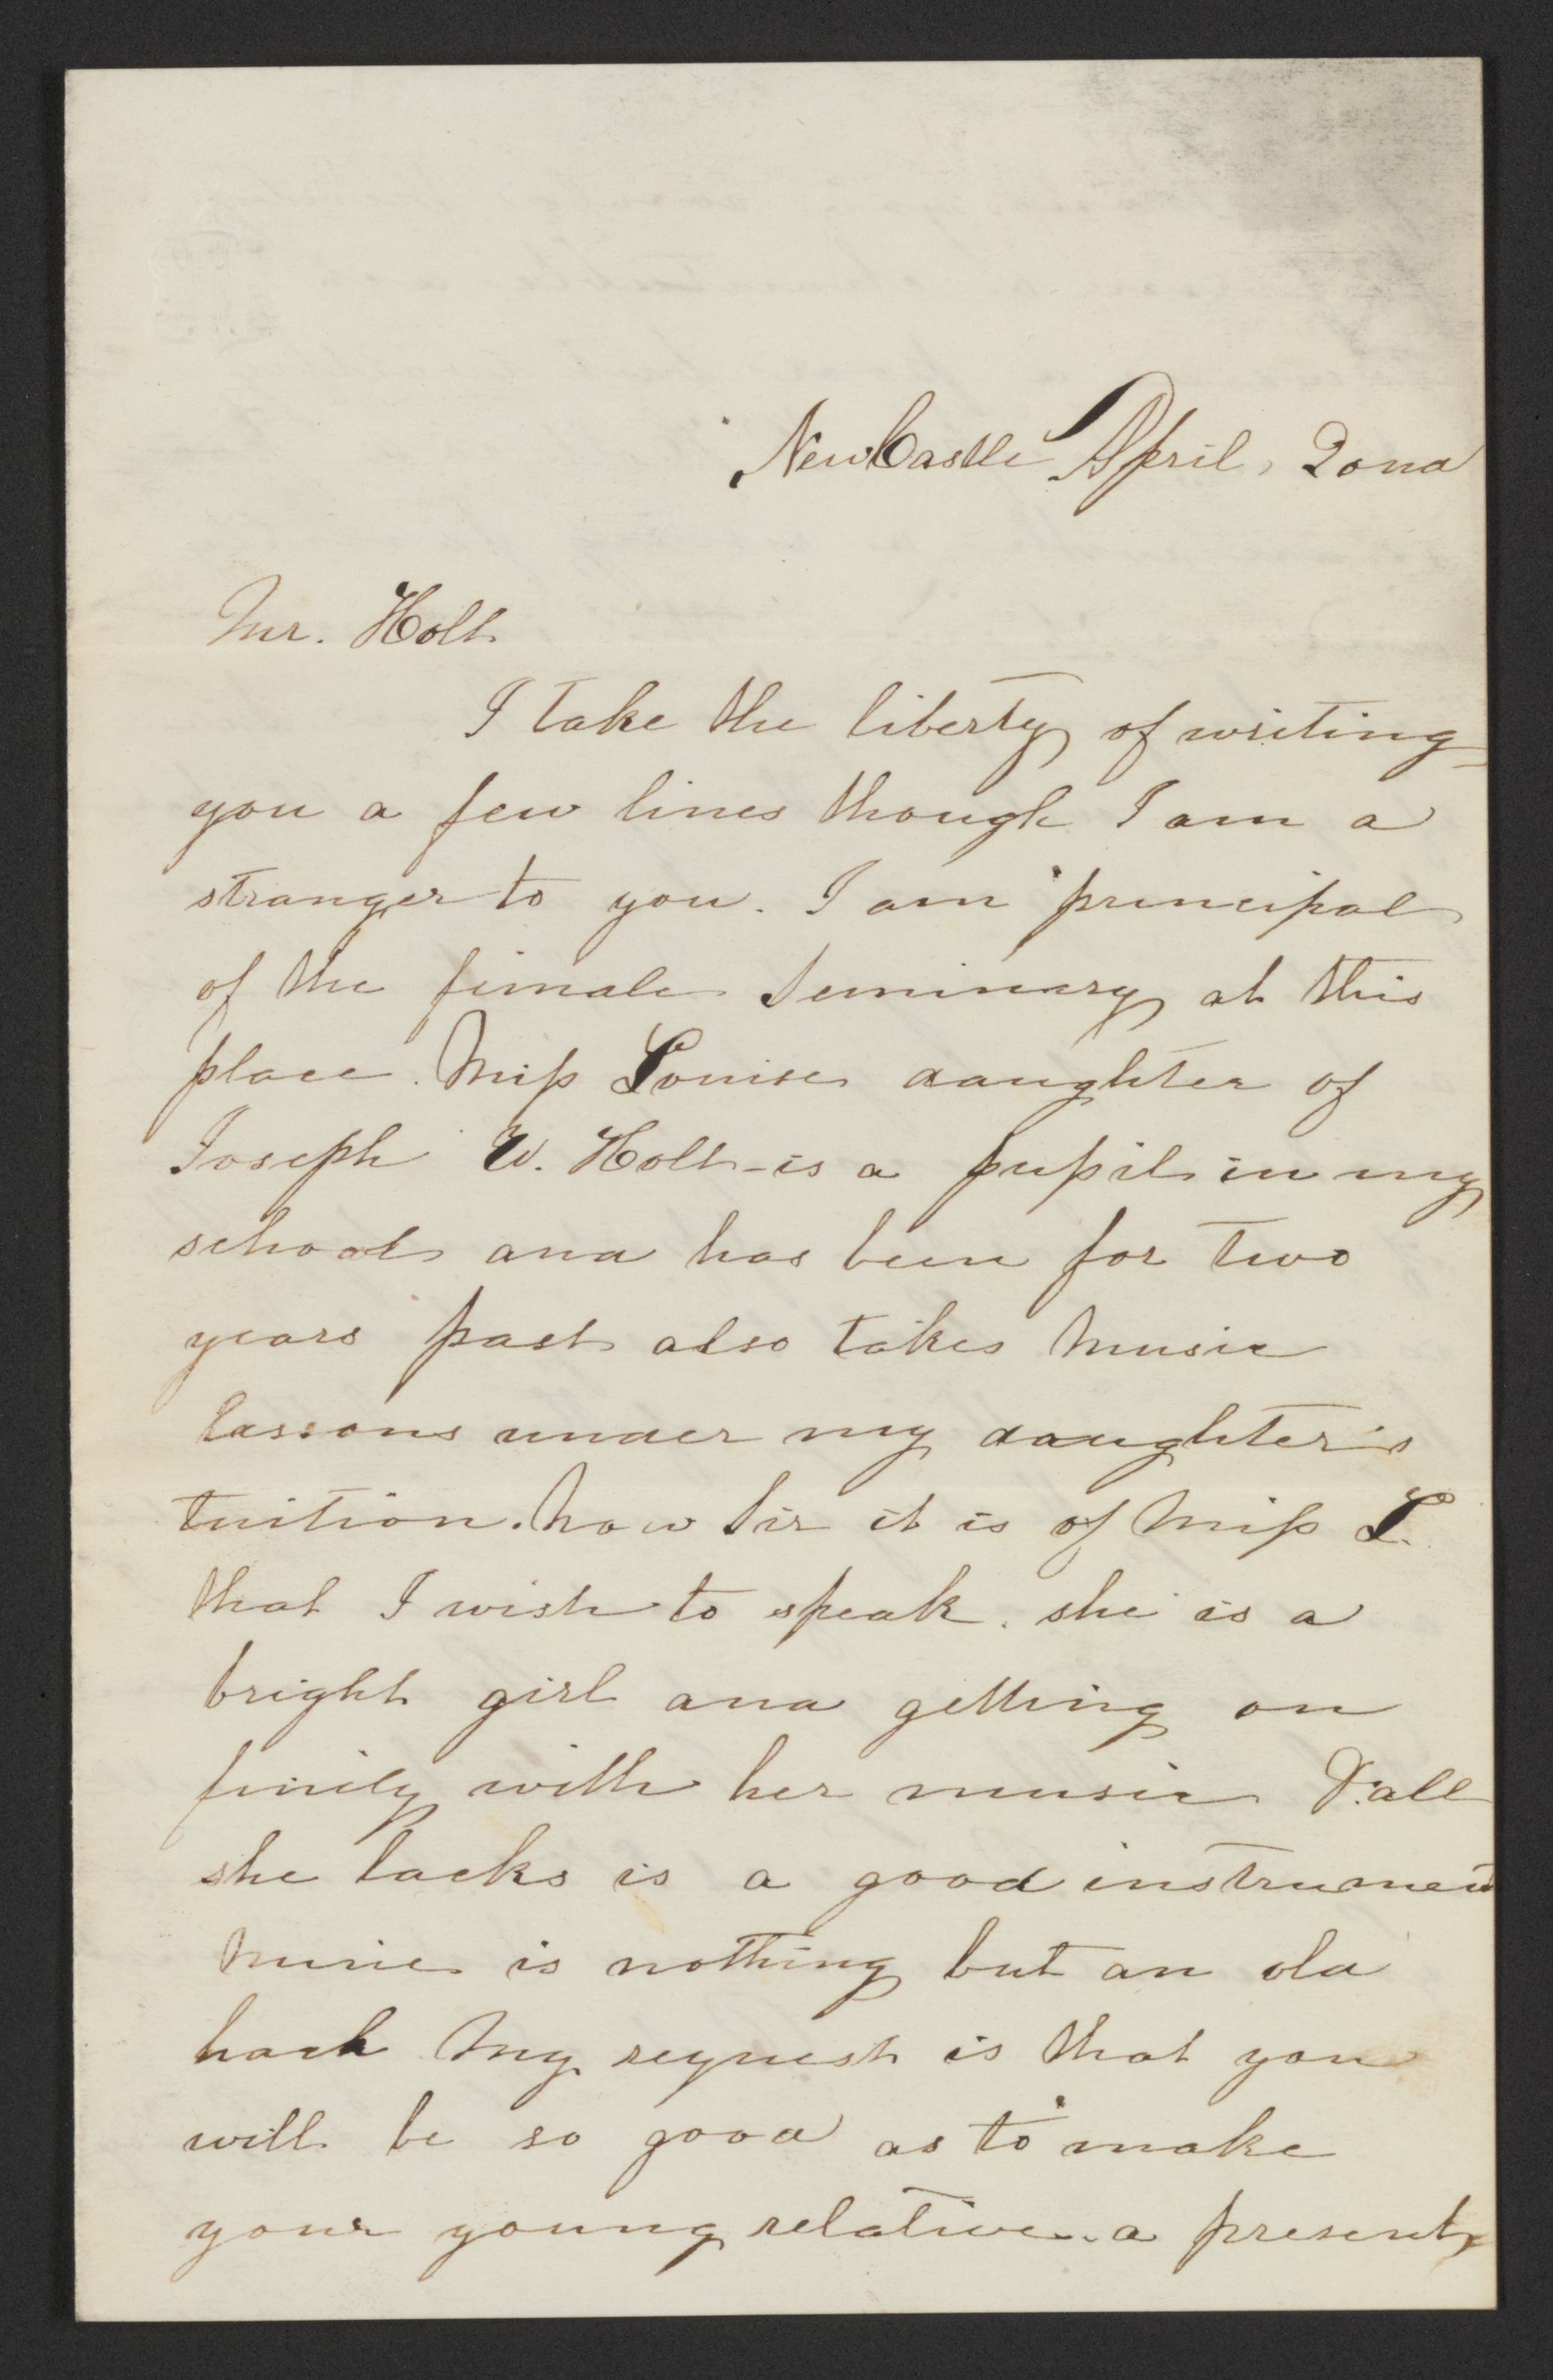 NewCastle April, 2ond
Mr. Holt
I take the liberty of writing
you a few lines though I am a
stranger to you. I am principal
of the female Seminary at this
place. Miss Louise daughter of
Joseph W. Holt is a pupil in my
school and has been for two
years past also takes Music
lessons under my daughter's
tuition. Now Sir it is of Miss L.
that I wish to speak. she is a
bright girl and getting on
finely with her music & all
she lacks is a good instrument
Mine is nothing but an old
hack My request is that you
will be so good as to make
your young relative a present